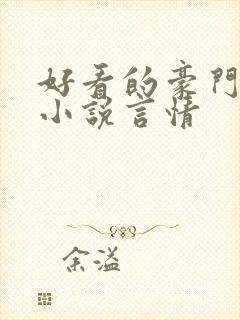 好看的豪門
小說言情
余溢